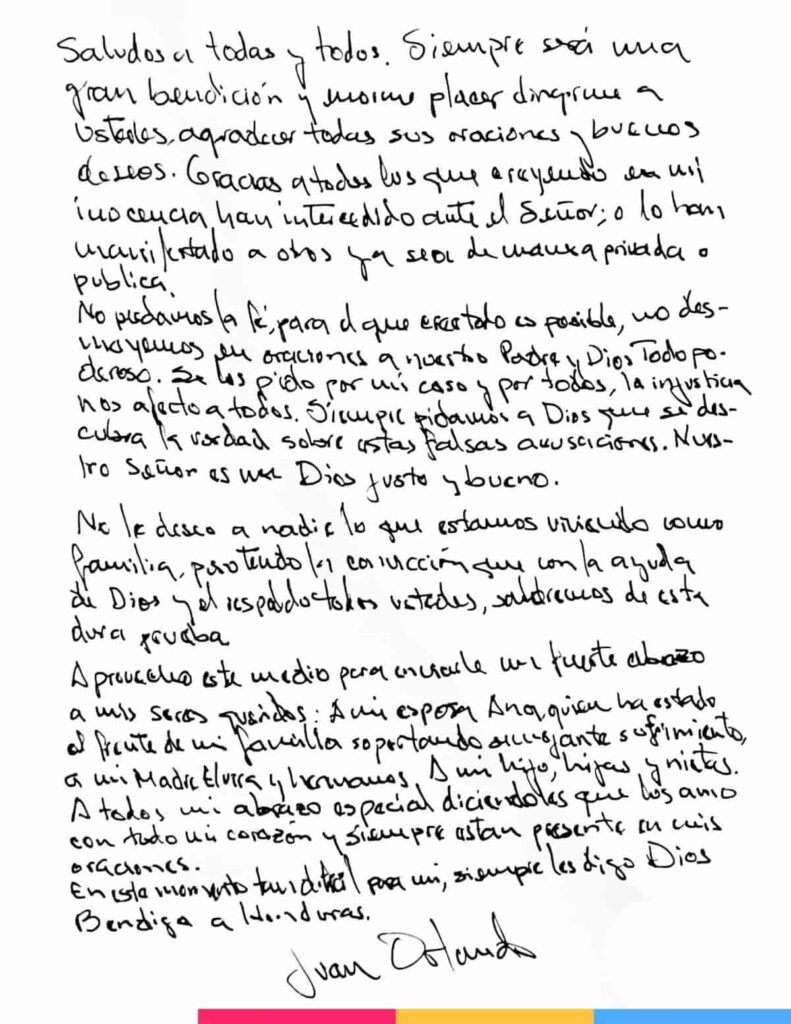 Saludos a todas y todos. Siempre será una
gran bendición y enorme placer dirigirme a
ustedes, agradecer todas sus oraciones y buenos
deseos. Gracias a todos los que creyendo en mi
inocencia han intercedido ante el Señor; o lo han
manifestado a otros ya sea de manera privada o
publica.
No perdamos la fé, para el que cree todo es posible, no des-
mayemos en oraciones a nuestro Padre y Dios Todo po-
deroso. Se los pido por mi caso y por todos, la injusticia
nos afecta a todos. Siempre pidamos a Dios que se des-
cubra la verdad sobre estas falsas acusaciones. Nues-
tro Señor es un Dios justo y bueno.
No le deseo a nadie lo que estamos viviendo como
familia, pero tengo la convicción que con la ayuda
de Dios y el respaldo todos ustedes, saldremos de esta
dura prueba
Aprovecho este medio para enviarle un fuerte abrazo
a mis seres queridos: A mi esposa Ana, quien ha estado
al frente de mi familia soportando semejante sufrimiento,
a mi Madre Elvira y hermanos. A mi hijo, hijas y nietas.
A todos mi abrazo especial diciendoles que los amo
con todo mi corazón y siempre estan presente en mis
oraciones.
En este momento tan dificil para mi, siempre les digo Dios
Bendiga a Honduras.
Juan Orlando